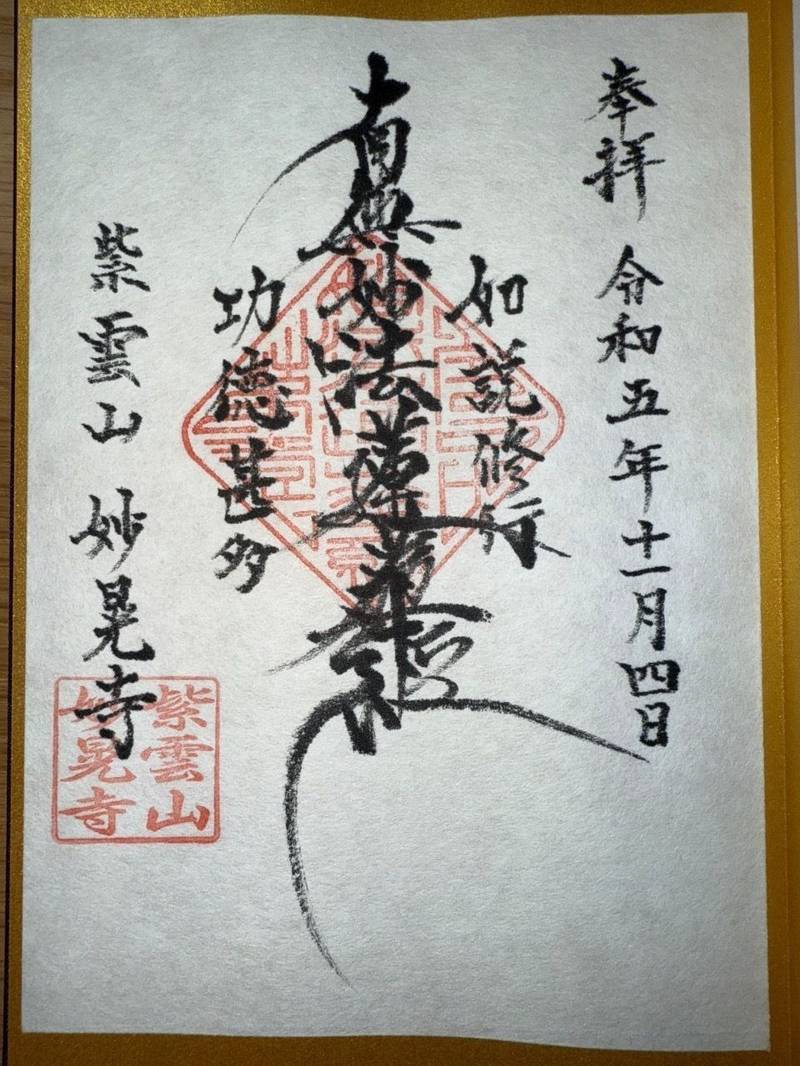 奉拝 令和五年十一月四日
如説修行
南無妙法蓮華経
功徳甚多
紫雲山 妙晃寺
紫雲山
妙晃寺